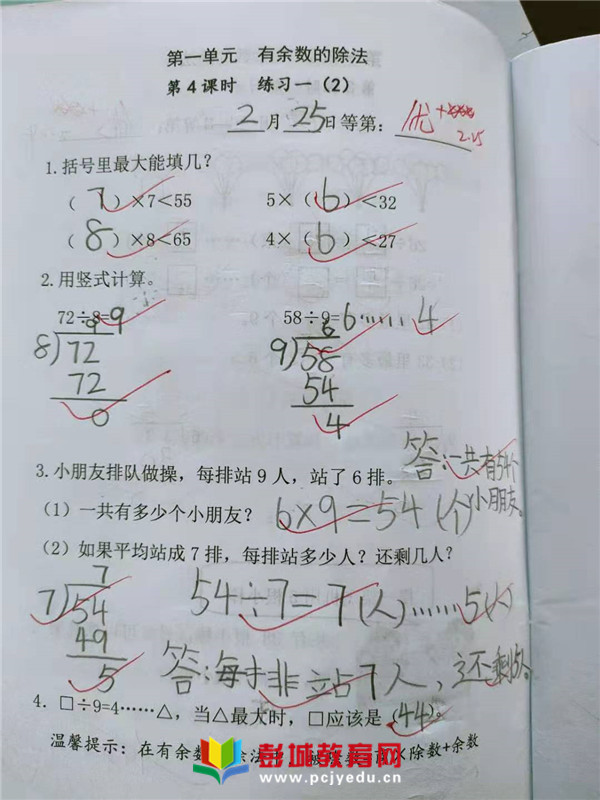 第一单元 有余数的除法
第4课时 练习一(2)
2月25日等第：优+
2.25
1.括号里最大能填几？
(7)×7<55 5×(6)<32
(8)×8<65 4×(6)<27
2.用竖式计算。
72÷8=9 58÷9=6……4
9 6
8)72 9)58
72 54
0 4
答:一共有54个
小朋友。
3.小朋友排队做操，每排站9人，站了6排。
(1)一共有多少个小朋友？ 6×9=54(个)
(2)如果平均站成7排，每排站多少人？还剩几人？
7
7)54 54÷7=7(人)……5(人)
49
5 答:每排站7人,还剩5人。
4. □÷9=4……△，当△最大时，□应该是(44)。
温馨提示：在有余数 除法 ×除数+余数
彭城教育网
www.pcjyedu.cn